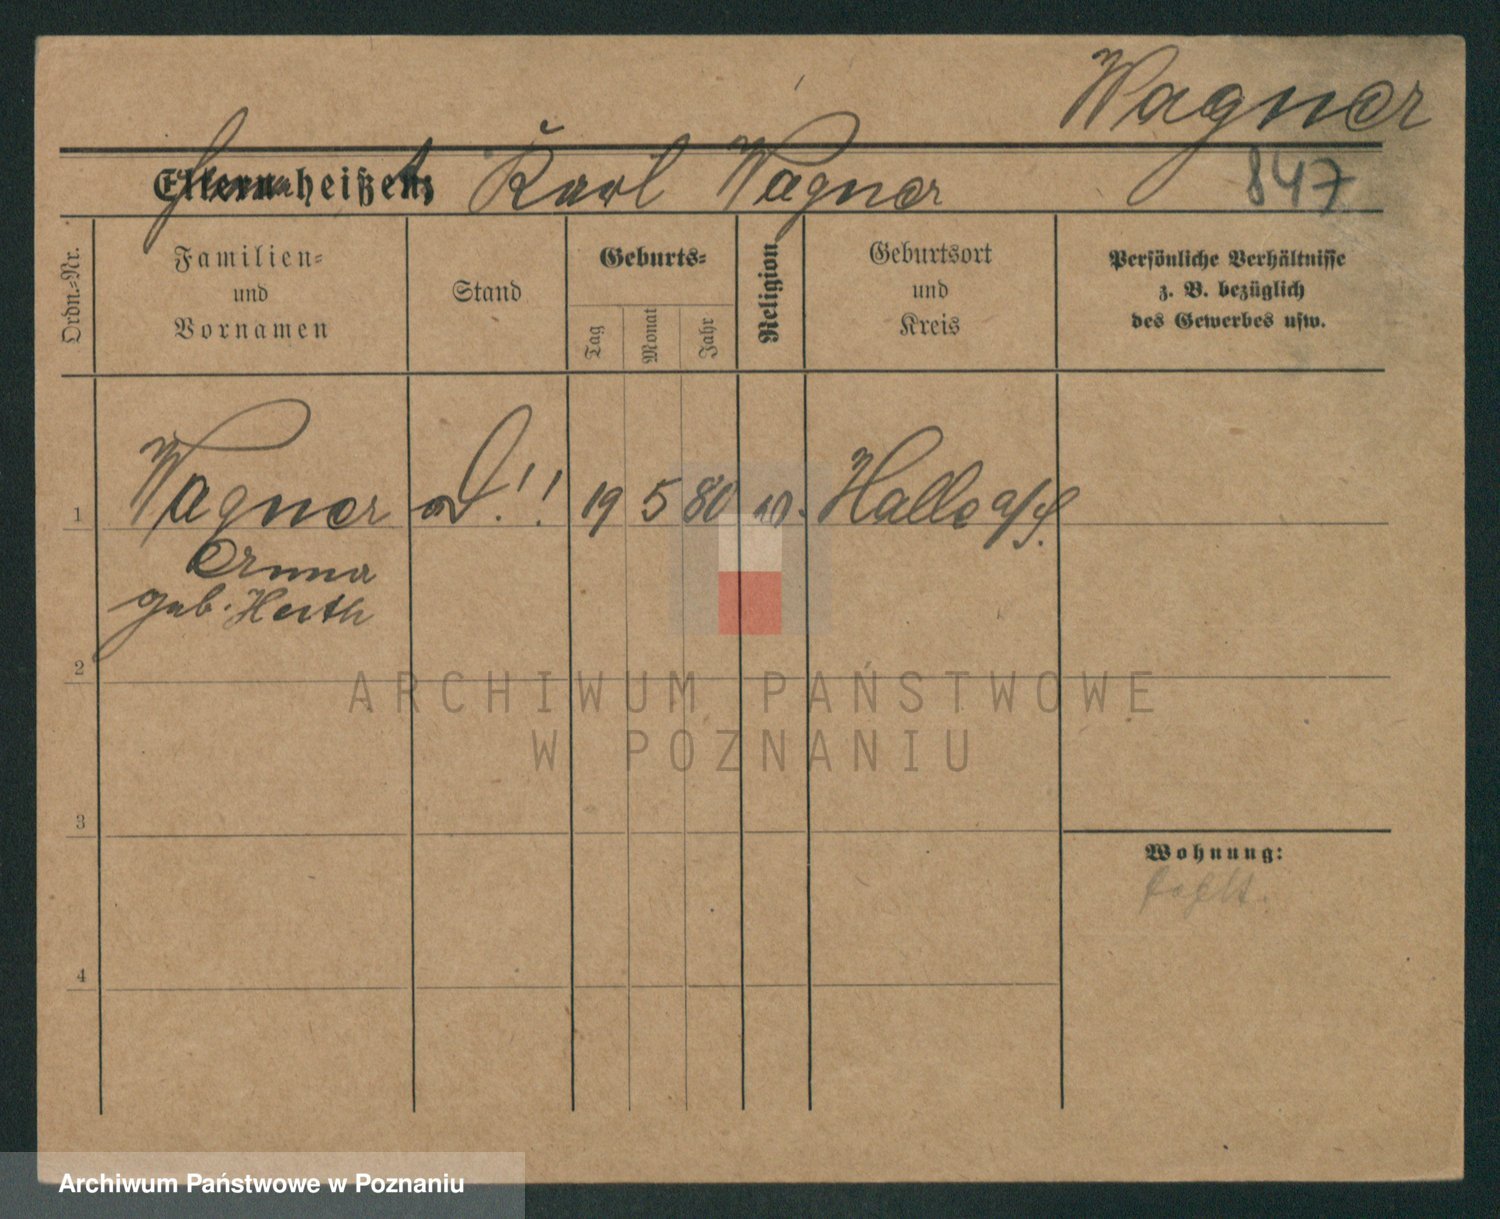 Wagner
Eltern heißen: Karl Wagner
847
Ordn.-Nr.
Familien-
und
Vornamen
Stand
Geburts-
Tag
Monat
Jahr
Religion
Geburtsort
und
Kreis
Persönliche Verhältnisse
z. B. bezüglich
des Gewerbes usw.
1
Wagner
19
5
80
Halle a/S.
geb.
2
3
4
Wohnung:
fehlt.
ARCHIWUM PAŃSTWOWE
W POZNANIU
Archiwum Państwowe w Poznaniu